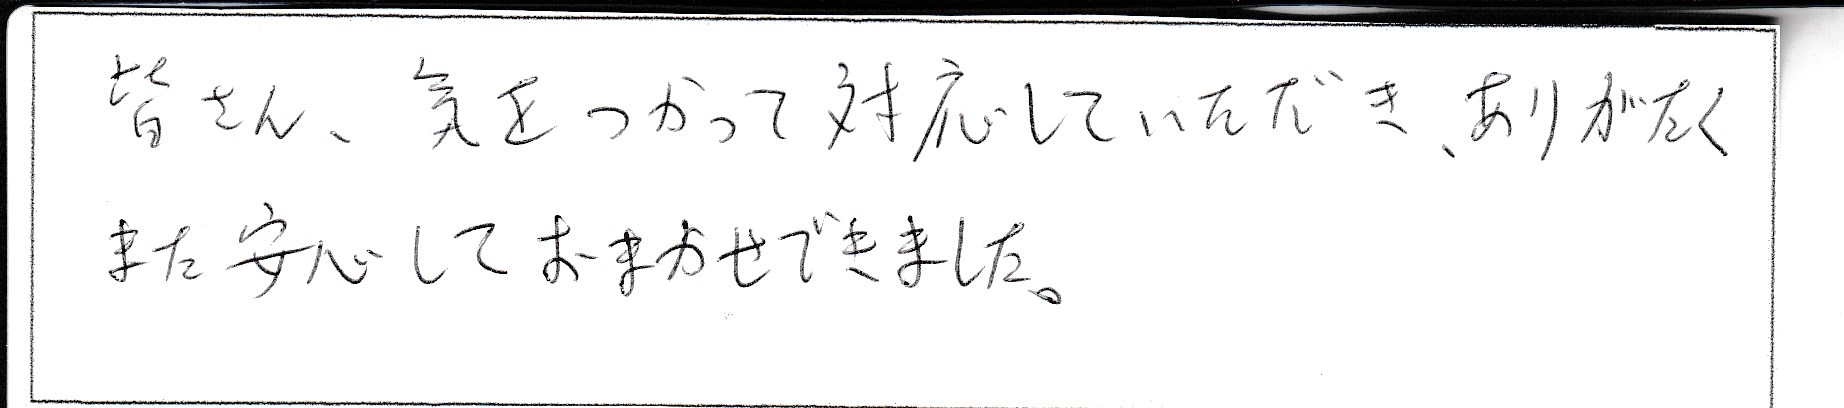 皆さん、気をつかって対応していただき、ありがたく
また安心しておまかせできました。